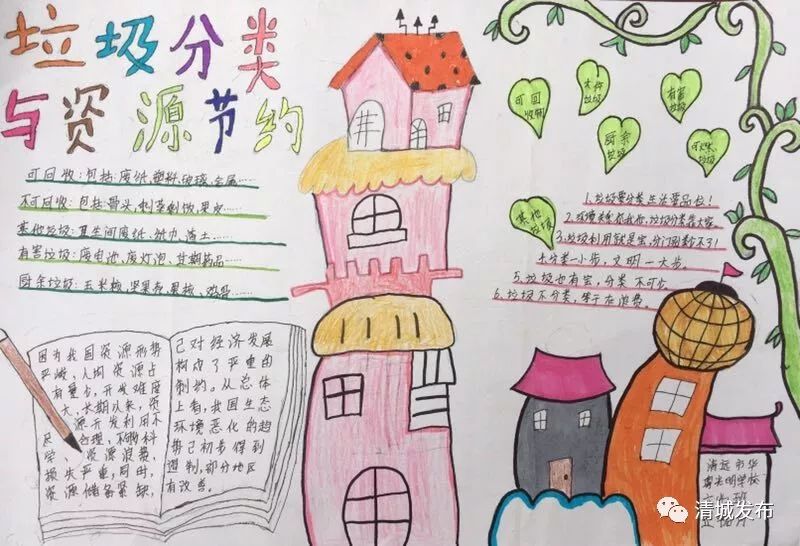 垃圾分类
与资源节约
可回收：包括：废纸，塑料，玻璃，金属……
不可回收：包括：骨头，剩菜剩饭，果皮……
其他垃圾：卫生间废纸，纸巾，渣土……
有害垃圾：废电池，废灯泡，过期药品……
厨余垃圾：玉米核，坚果壳，果核，鸡骨……
因为我国资源形势
严峻，人均资源占
有量少，开发难度
大，长期以来，资
源开发利用不
尽合理，不够科
学，资源浪费，
损失严重，同时，
资源储备紧缺，
已对经济发展
构成了严重的
制约。从总体
上看，我国生态
环境恶化的趋
势已初步得到
遏制，部分地区
有改善。
可回
收物
垃圾
有害
垃圾
厨余
垃圾
垃圾
其他
垃圾
1.垃圾要分类生活要品位！
垃圾分类靠大家
3.垃圾利用就是宝，
4.分类一小步，文明一大步。
5.垃圾也有宝，分类不可少
6.垃圾不分类，等于在浪费。
清远市华
学校
班
清城发布